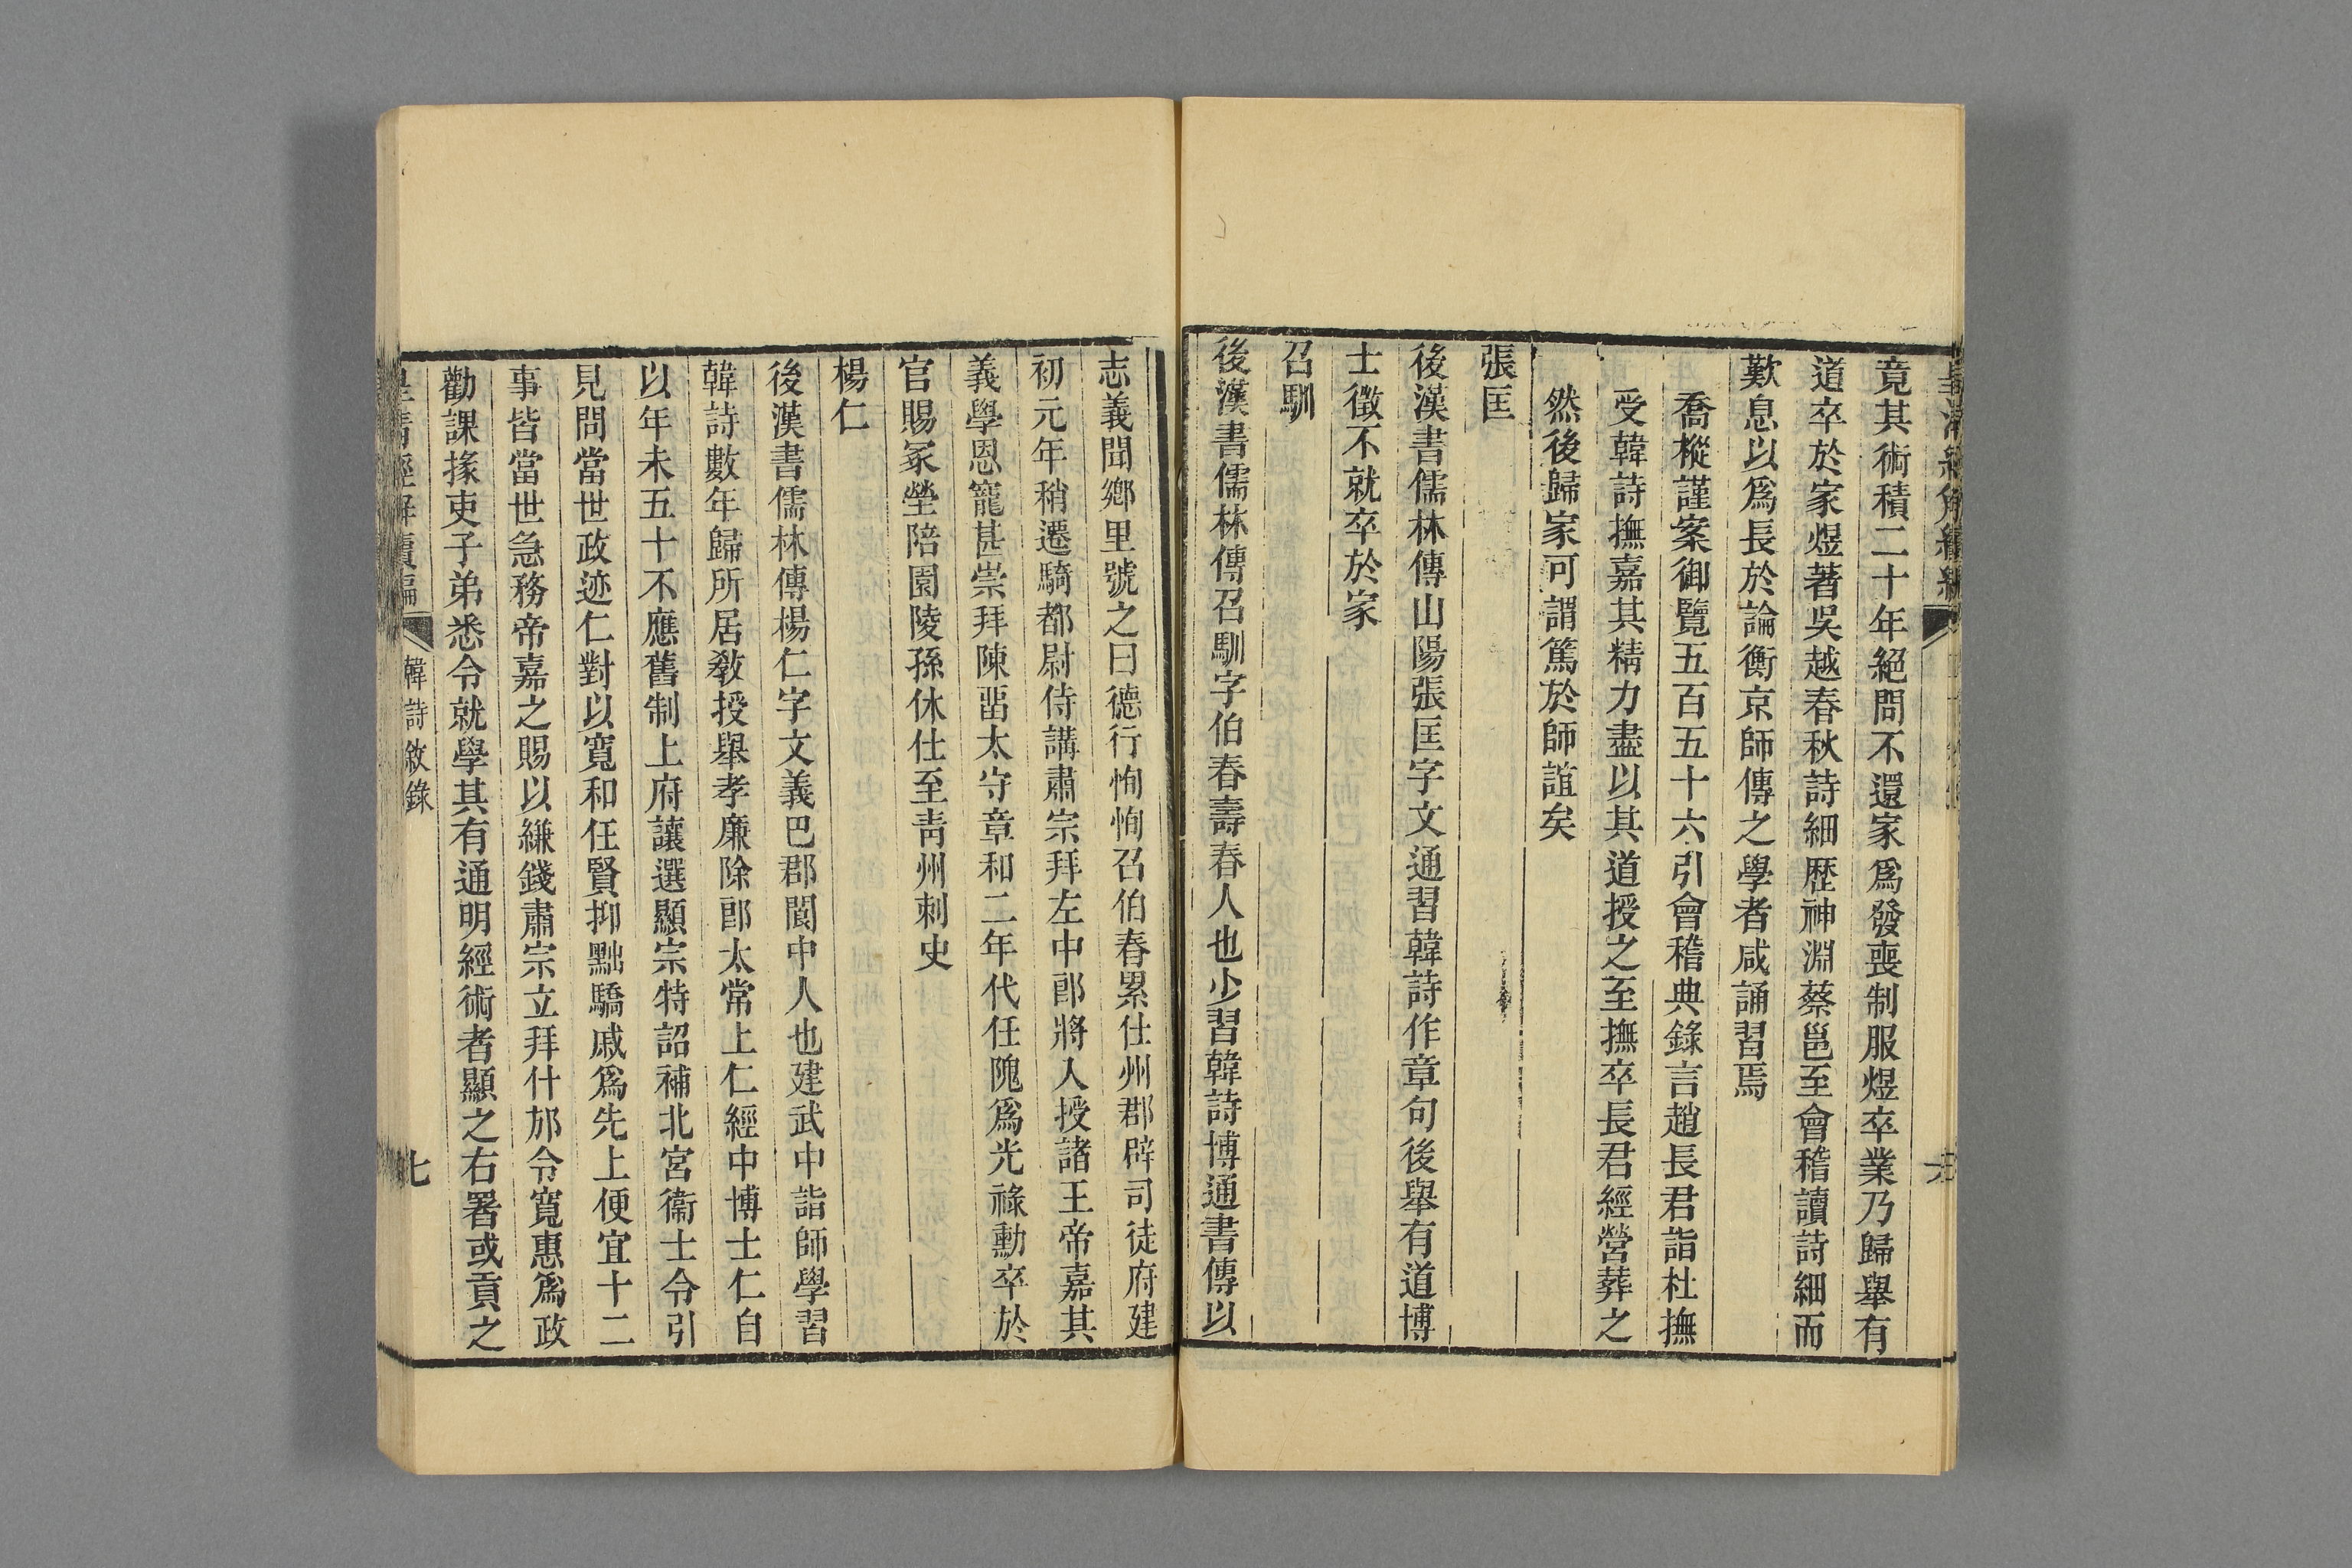 竟其術積二十年絕問不還家爲發喪制服煜卒業乃歸舉有
道卒於家煜著吳越春秋詩細歷神淵蔡邕至會稽讀詩細而
歎息以爲長於論衡京師傳之學者咸誦習焉
喬樅謹案御覽五百五十六引會稽典錄言趙長君詣杜撫
受韓詩撫嘉其精力盡以其道授之至撫卒長君經營葬之
然後歸家可謂篤於師誼矣
張匡
後漢書儒林傳山陽張匡字文通習韓詩作章句後舉有道博
士徵不就卒於家
召馴
後漢書儒林傳召馴字伯春壽春人也少習韓詩博通書傳以
志義聞鄉里號之曰德行恂恂召伯春累仕州郡辟司徒府建
初元年稍遷騎都尉侍講肅宗拜左中郎將入授諸王帝嘉其
義學恩寵甚崇拜陳畱太守章和二年代任隗爲光祿勳卒於
官賜冢塋陪園陵孫休仕至青州刺史
楊仁
後漢書儒林傳楊仁字文義巴郡閬中人也建武中詣師學習
韓詩數年歸所居敎授舉孝廉除郎太常上仁經中博士仁自
以年未五十不應舊制上府讓選顯宗特詔補北宮衞士令引
見問當世政迹仁對以寬和任賢抑黜驕戚爲先上便宜十二
事皆當世急務帝嘉之賜以縑錢肅宗立拜什邡令寬惠爲政
勸課掾吏子弟悉令就學其有通明經術者顯之右署或貢之
皇清經解續編
韓詩敘錄
七